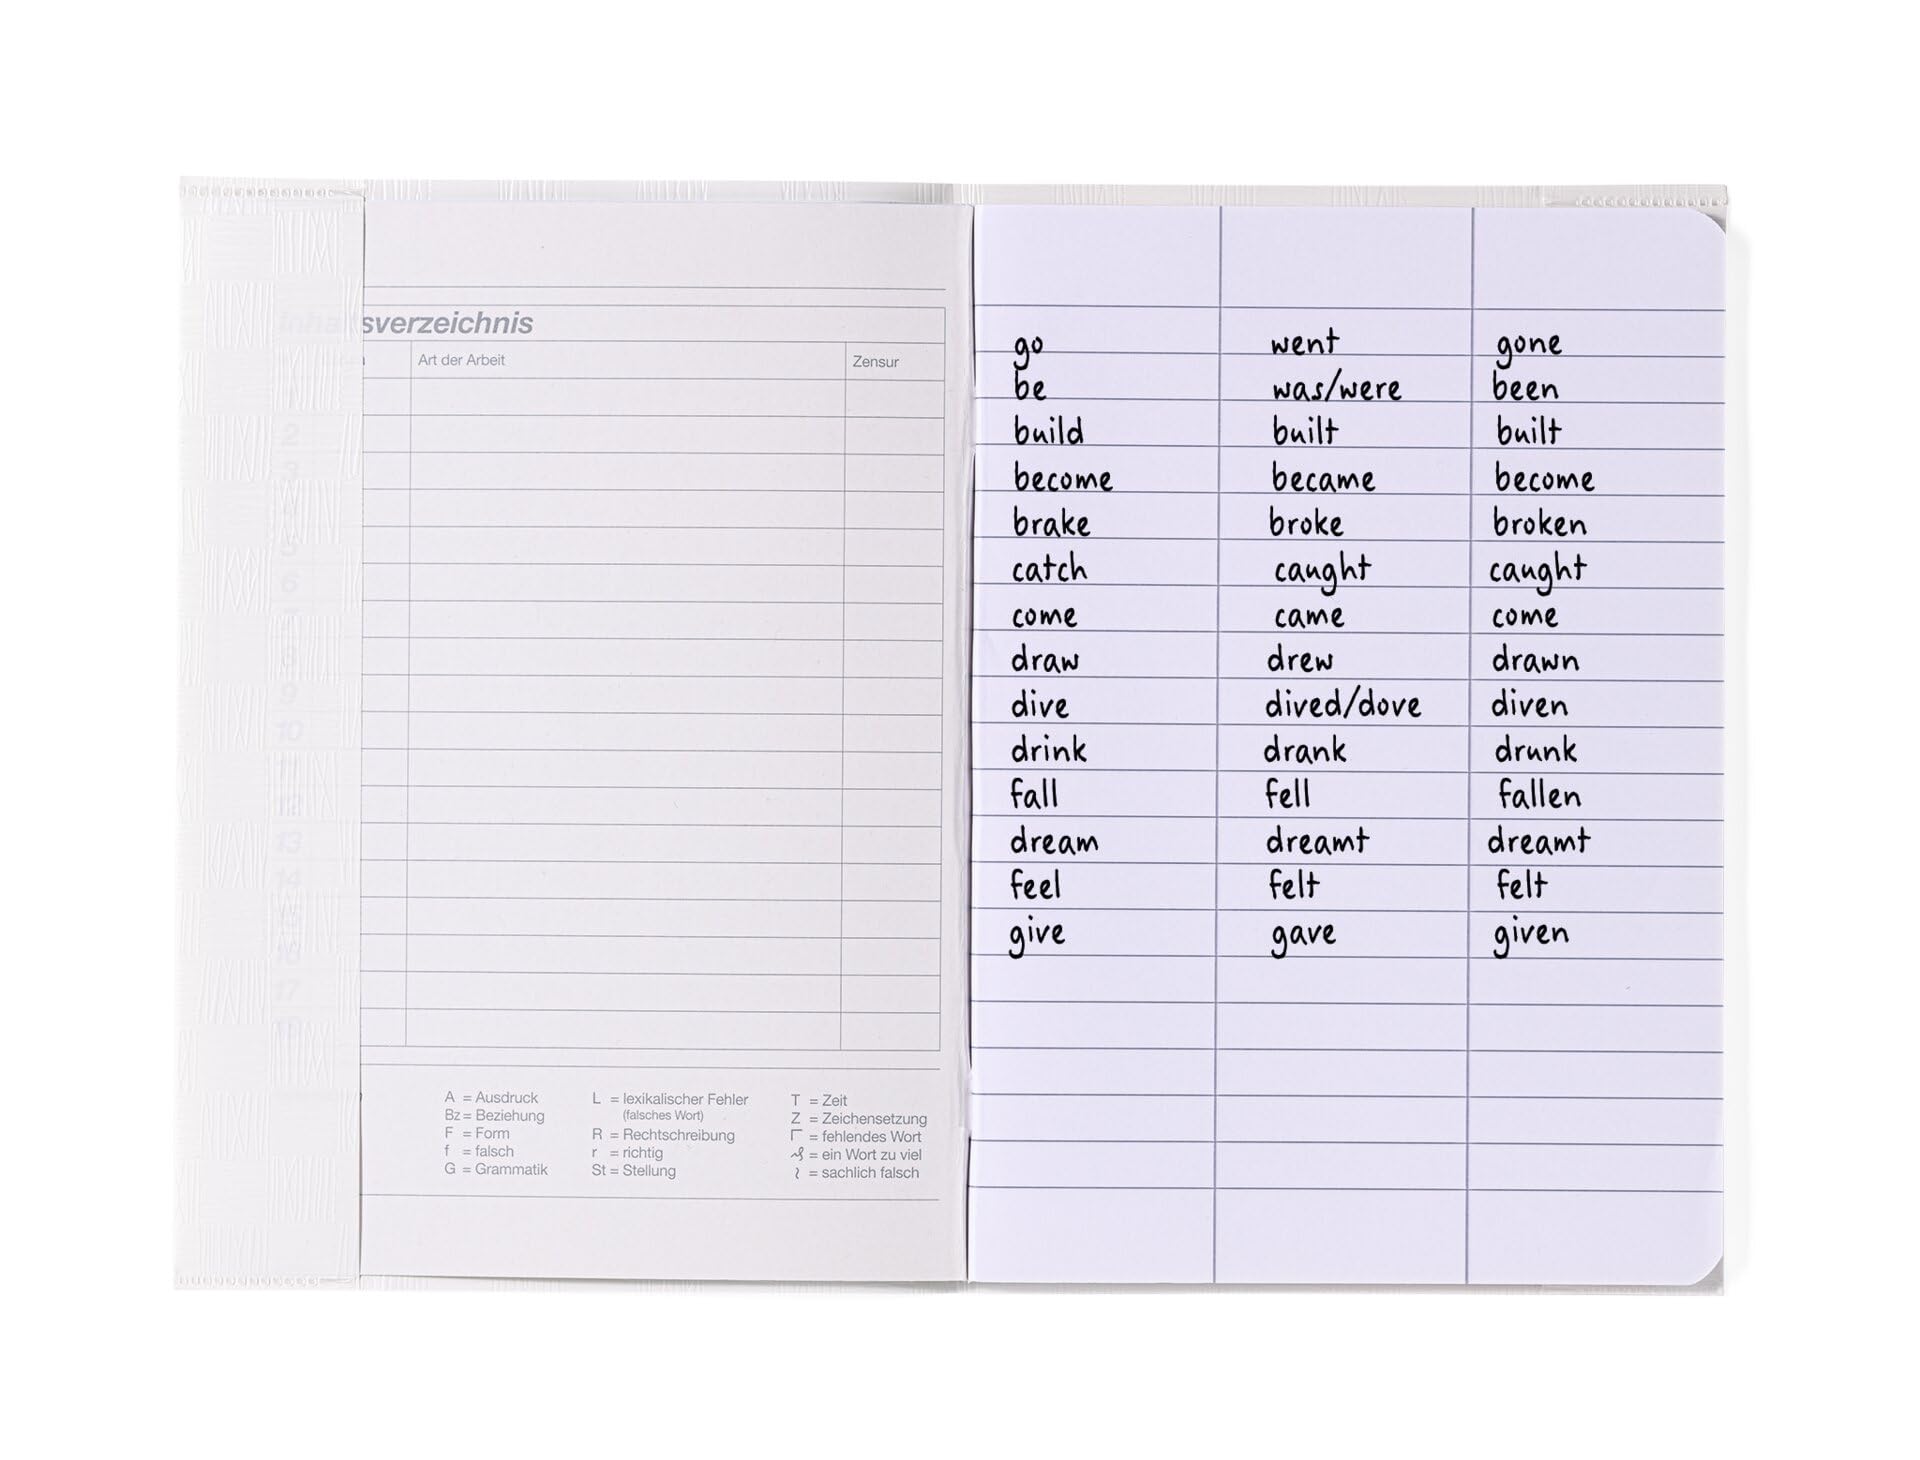 Inhaltsverzeichnis
Art der Arbeit Zensur
2
3
5
6
7
8
9
10
11
12
13
14
15
16
17
18
A = Ausdruck L = lexikalischer Fehler T = Zeit
Bz = Beziehung (falsches Wort) Z = Zeichensetzung
F = Form R = Rechtschreibung = fehlendes Wort
f = falsch r = richtig = ein Wort zu viel
G = Grammatik St = Stellung = sachlich falsch
go went gone
be was/were been
build built built
become became become
brake broke broken
catch caught caught
come came come
draw drew drawn
dive dived/dove diven
drink drank drunk
fall fell fallen
dream dreamt dreamt
feel felt felt
give gave given